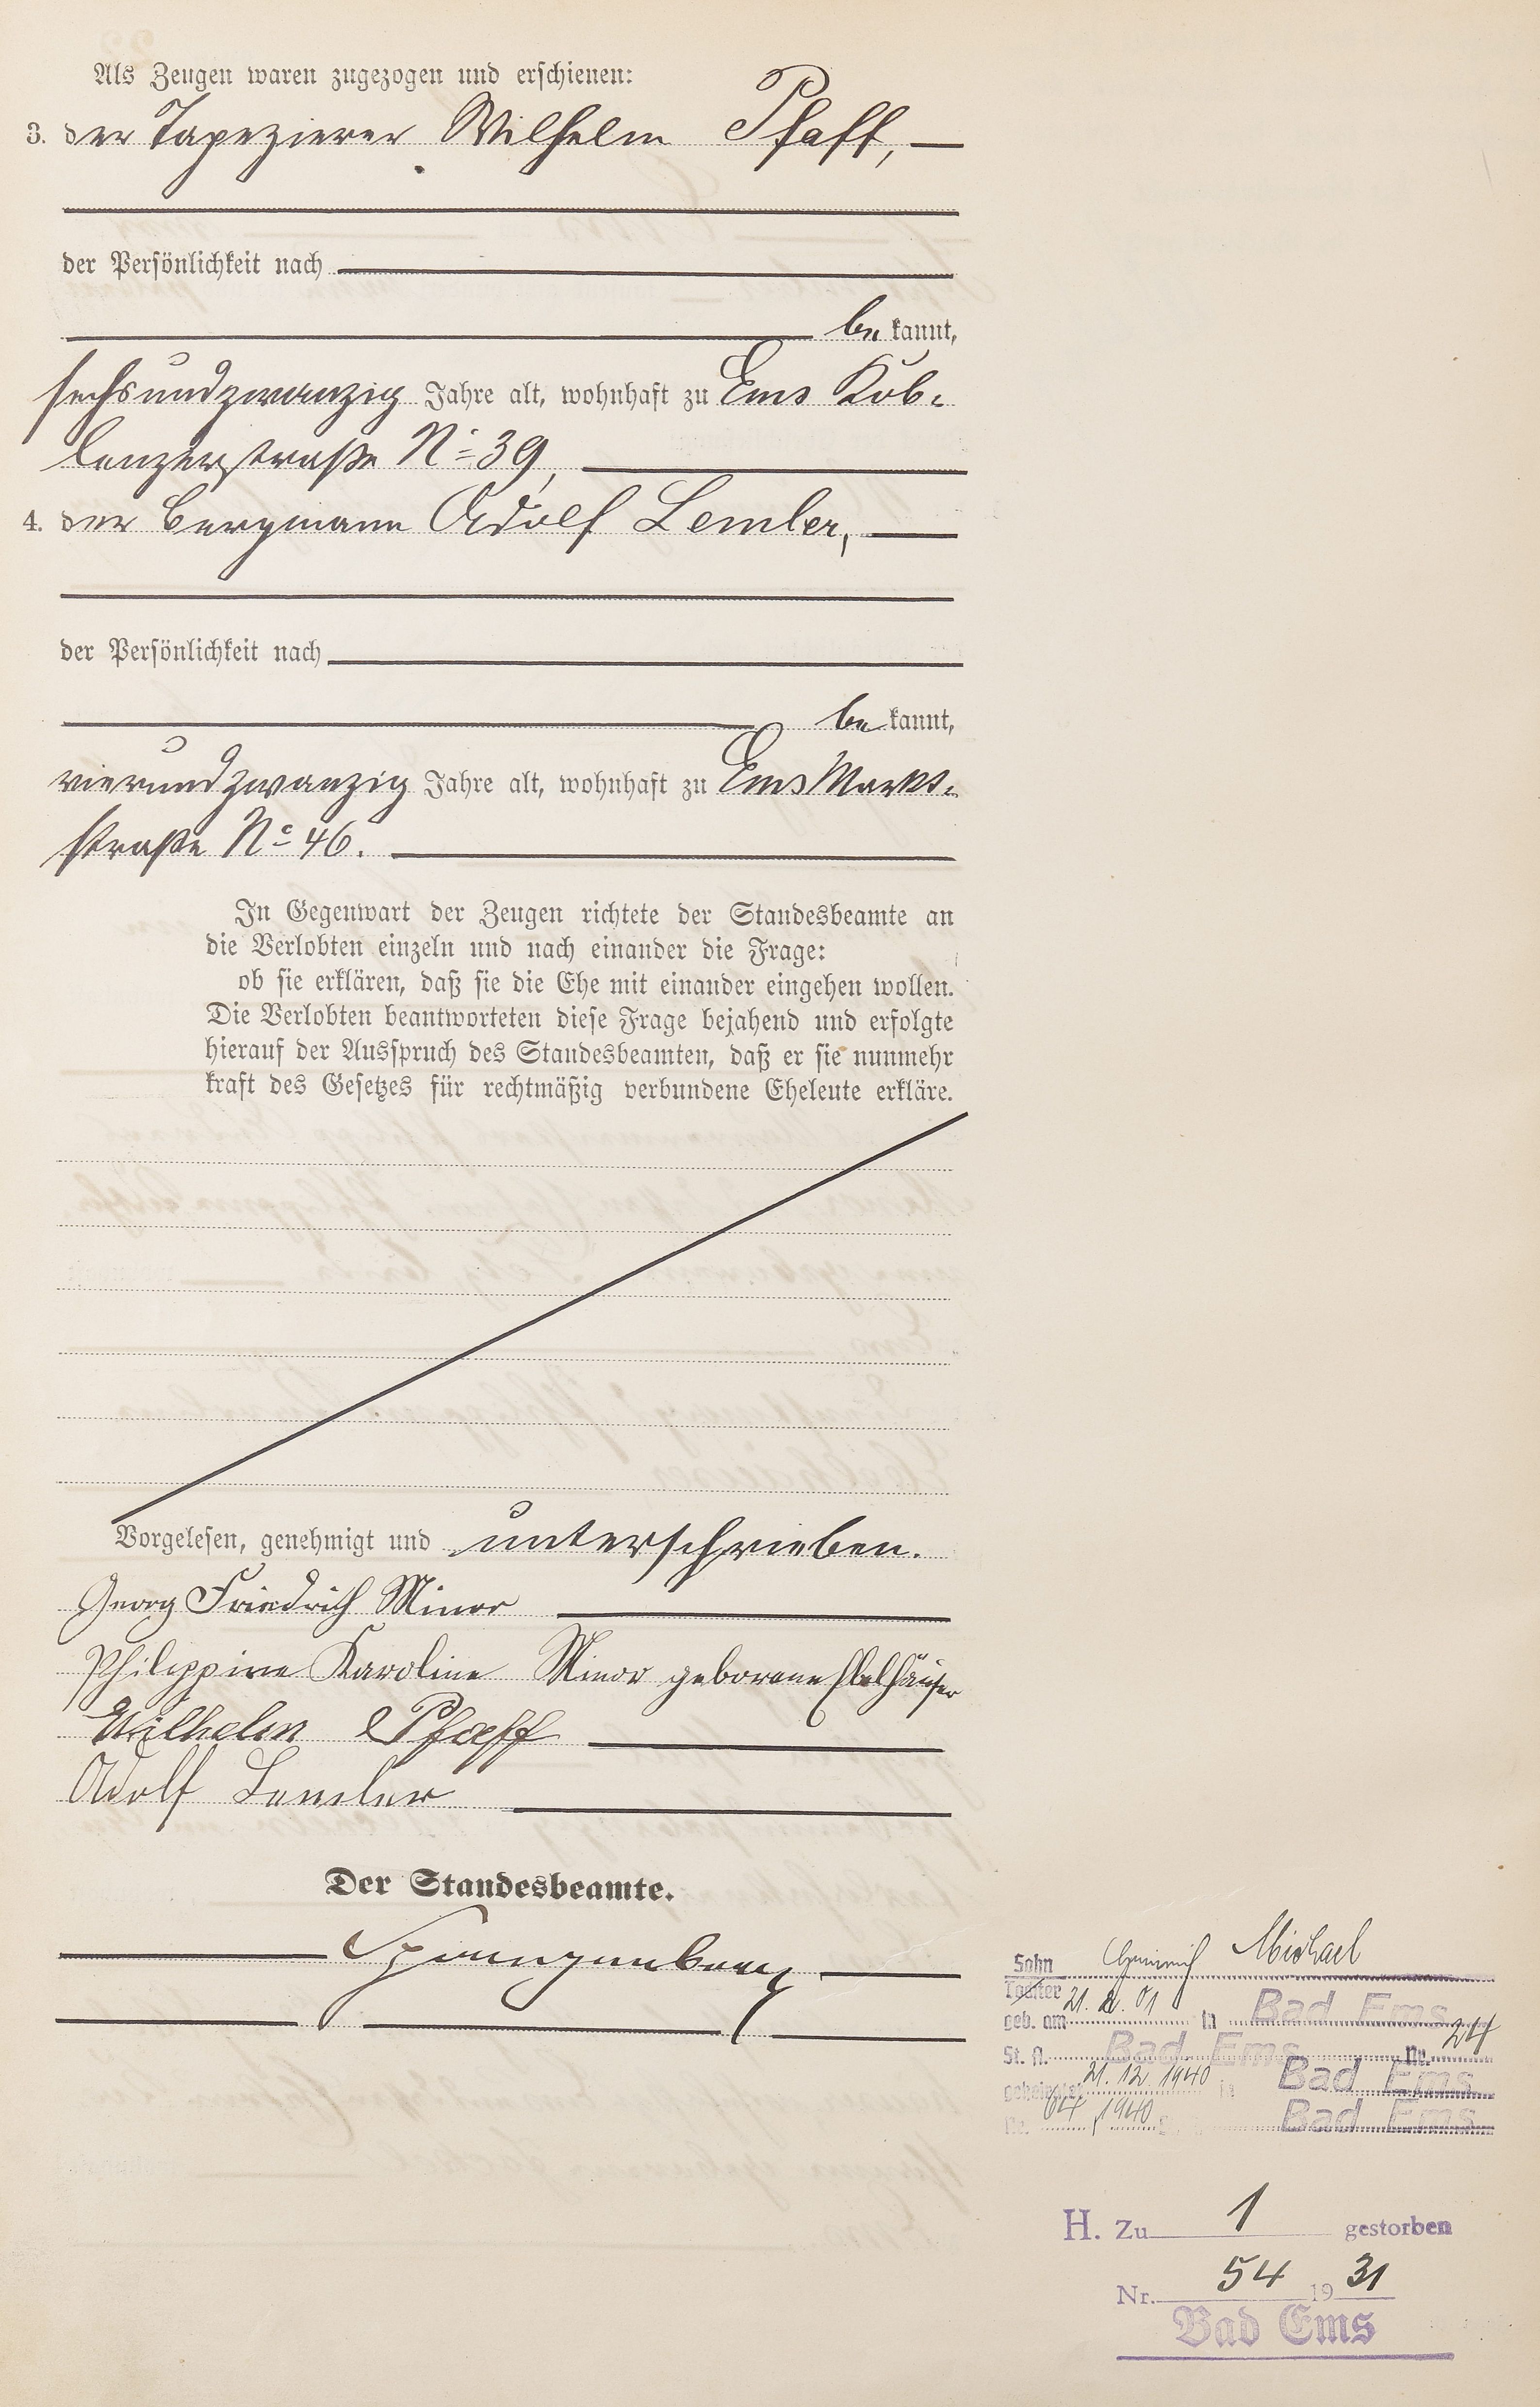 Als Zeugen waren zugezogen und erschienen:
3. der Tapezierer Wilhelm Pfaff,
der Persönlichkeit nach
be kannt,
sechsundzwanzig Jahre alt, wohnhaft zu Ems Kob-
lenzerstraße No 39,
4. der Bergmann Adolf Lemler,
der Persönlichkeit nach
be kannt,
vierundzwanzig Jahre alt, wohnhaft zu Ems Markt-
straße No 46.
In Gegenwart der Zeugen richtete der Standesbeamte an
die Verlobten einzeln und nach einander die Frage:
ob sie erklären, daß sie die Ehe mit einander eingehen wollen.
Die Verlobten beantworteten diese Frage bejahend und erfolgte
hierauf der Ausspruch des Standesbeamten, daß er sie nunmehr
kraft des Gesetzes für rechtmäßig verbundene Eheleute erkläre.
Vorgelesen, genehmigt und unterschrieben.
Georg Friedrich Minor
Philippine Karoline Minor geborene Ebelhäuser
Wilhelm Pfaff
Adolf Lemler
Der Standesbeamte.
Spangenberg
Sohn Heinrich Michael
Tochter
geb. am 21. 2. 01 in Bad Ems
St. A. Bad Ems Nr. 24
geheiratet 21. 12. 1940 in Bad Ems
Nr. 64, 1940 Bad Ems
H. Zu 1 gestorben
Nr. 54 1931
Bad Ems